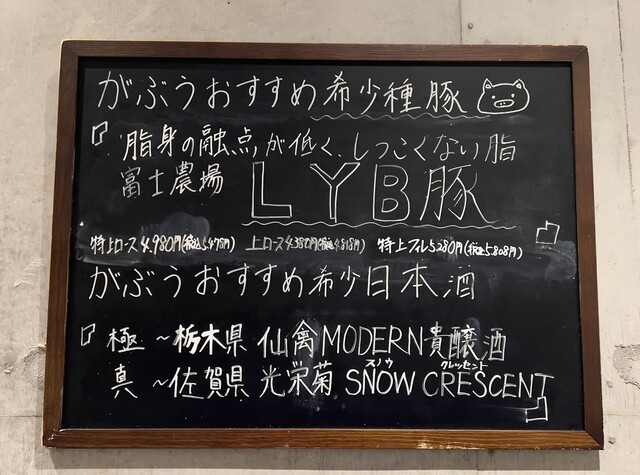 がぶうおすすめ希少種豚
『脂身の融点が低く、しつこくない脂
富士農場 LYB豚』
特上ロース4.980円(税込5.478円) 上ロース4.380円(税込4.818円) 特上フィレ5.280円(税込5.808円)
がぶうおすすめ希少日本酒
『極 ~栃木県 仙禽MODERN貴醸酒
スノウ クレッセント
真 ~佐賀県 光栄菊 SNOW CRESCENT』